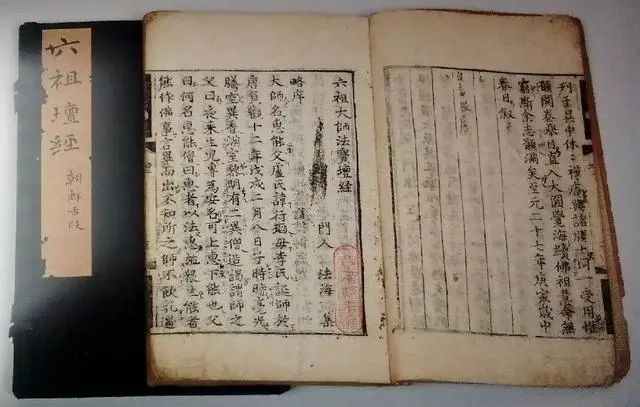 六祖壇經
朝鮮古版
列于吳中休々禪庵與諸勝士同一受用惟
願開卷舉目直入大圓覺海續佛祖慧命無
窮斯余志願滿矣至元二十七年庚寅歲中
春日叙
六祖大師法寶壇經
門人 法海 集
略序
大師名惠能父盧氏諱行瑫母李氏誕師於
唐貞觀十二年戊戌二月八日子時時毫光
騰空異香滿室黎明有二異僧造謁謂師之
父曰夜來生兒專為安名可上惠下能也父
曰何名惠能僧曰惠者以法惠施衆生能者
能作佛事言畢而出不知所之師不飲乳遇